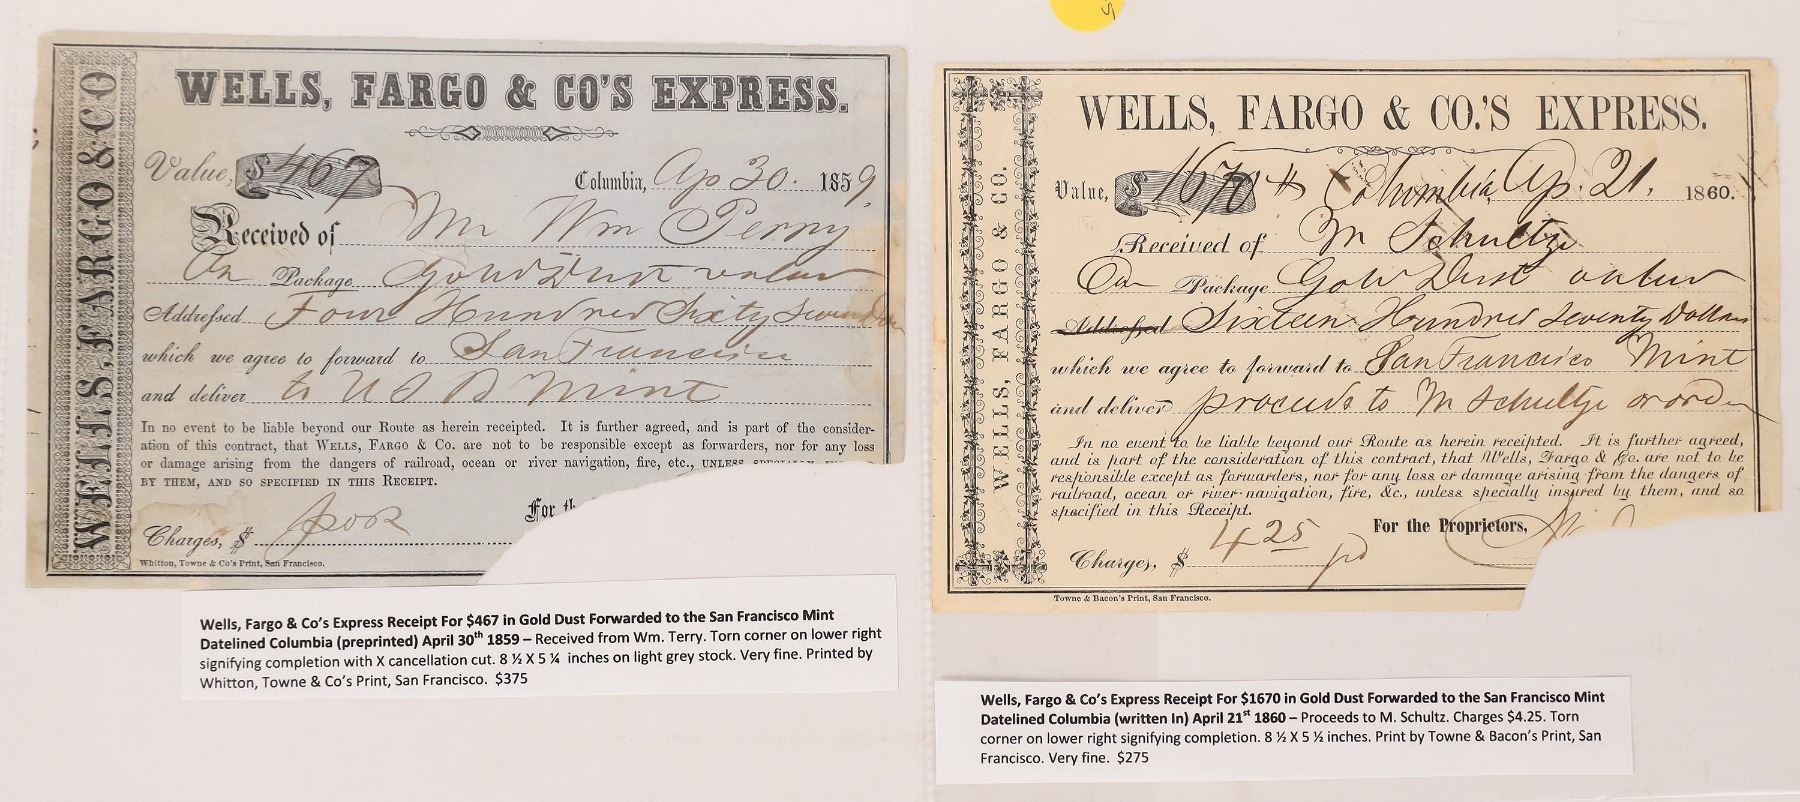 WELLS, FARGO & CO
WELLS, FARGO & CO'S EXPRESS.
Value, $ 467 Columbia, Ap 30. 1859.
Received of Mr Wm Perry
On Package Gold Dust value
Addressed Four Hundred Sixty Seven Dolls
which we agree to forward to San Francisco
and deliver to U S B Mint
In no event to be liable beyond our Route as herein receipted. It is further agreed, and is part of the consider-
ation of this contract, that WELLS, FARGO & CO. are not to be responsible except as forwarders, nor for any loss
or damage arising from the dangers of railroad, ocean or river navigation, fire, etc., UNLESS SPECIALLY
BY THEM, AND SO SPECIFIED IN THIS RECEIPT.
For th
Charges, $
Whitton, Towne & Co's Print, San Francisco.
Wells, Fargo & Co's Express Receipt For $467 in Gold Dust Forwarded to the San Francisco Mint
Datelined Columbia (preprinted) April 30th 1859 – Received from Wm. Terry. Torn corner on lower right
signifying completion with X cancellation cut. 8 ½ X 5 ¼ inches on light grey stock. Very fine. Printed by
Whitton, Towne & Co's Print, San Francisco. $375
WELLS, FARGO & CO.
WELLS, FARGO & CO.'S EXPRESS.
Value, $ 1670 Columbia, Ap. 21. 1860.
Received of M Schultze
On Package Gold Dust value
Addressed Sixteen Hundred Seventy Dollars
which we agree to forward to San Francisco Mint
and deliver proceeds to M Schultze or order
In no event to be liable beyond our Route as herein receipted. It is further agreed,
and is part of the consideration of this contract, that Wells, Fargo & Co. are not to be
responsible except as forwarders, nor for any loss or damage arising from the dangers of
railroad, ocean or river navigation, fire, &c., unless specially insured by them, and so
specified in this Receipt.
For the Proprietors,
Charges, $ 4 25 pd
Towne & Bacon's Print, San Francisco.
Wells, Fargo & Co's Express Receipt For $1670 in Gold Dust Forwarded to the San Francisco Mint
Datelined Columbia (written In) April 21st 1860 – Proceeds to M. Schultz. Charges $4.25. Torn
corner on lower right signifying completion. 8 ½ X 5 ½ inches. Print by Towne & Bacon's Print, San
Francisco. Very fine. $275